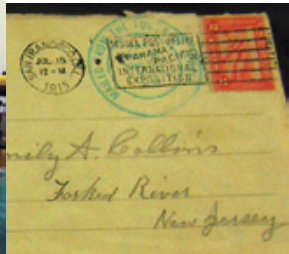 SAN FRANCISCO, CAL.
JUL 15
12-M
1915
MAILED FROM THE
PANAMA
PACIFIC
INTERNATIONAL
EXPOSITION
mily A. Collins
Forked River
New Jersey